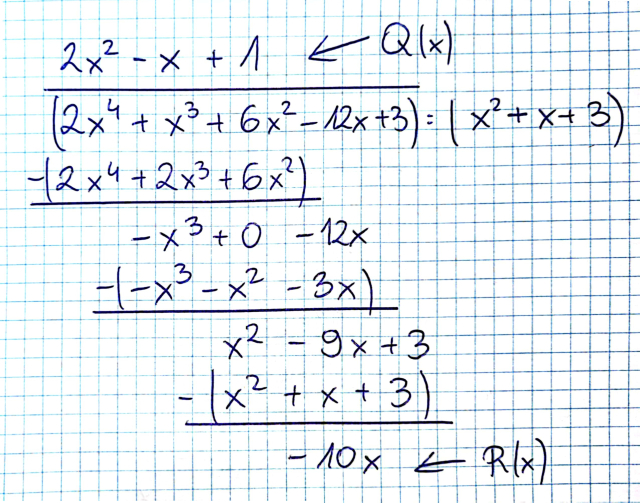 2x² - x + 1 ← Q(x)
(2x⁴ + x³ + 6x² - 12x + 3) : (x² + x + 3)
-(2x⁴ + 2x³ + 6x²)
-x³ + 0 - 12x
-(-x³ - x² - 3x)
x² - 9x + 3
-(x² + x + 3)
-10x ← R(x)